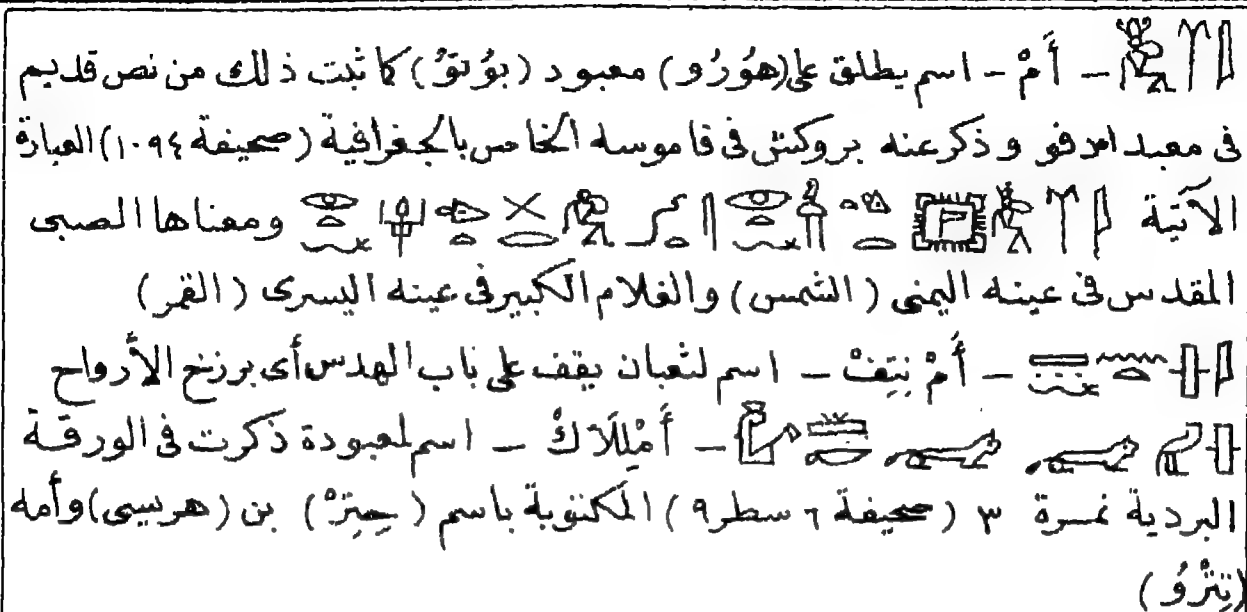 – أَمْ – اسم يطلق على (هوُرُو) معبود (بوُتوُ) كما ثبت ذلك من نص قديم
فى معبد ادفو وذكر عنه بروكش فى قاموسه الخامس بالجغرافية (صحيفة ١٠٩٤) العبارة
الآتية ومعناها الصبى
المقدس فى عينه اليمنى (الشمس) والغلام الكبير فى عينه اليسرى (القمر)
– أَمْ نِتِفْ – اسم لثعبان يقف على باب الهدس أى برزخ الأرواح
– أَمْلِلَاكْ – اسم لمعبودة ذكرت فى الورقة
البردية نمرة ٣ (صحيفة ٦ سطر ٩) المكتوبة باسم (حِتِرْ) بن (هرسيى) وأمه
(تِتْرُو)